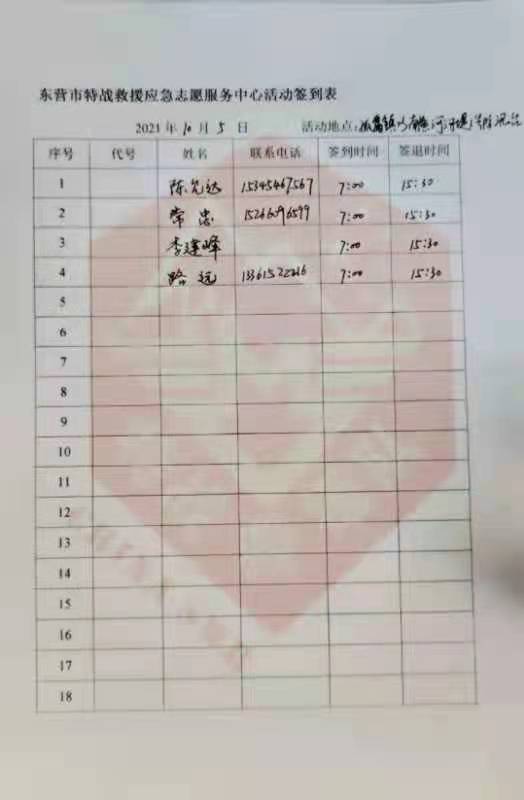 东营市特战救援应急志愿服务中心活动签到表
2021 年 10 月 5 日 活动地点:
序号 代号 姓名 联系电话 签到时间 签退时间
1 陈允达 15345467567 7:00 15:30
2 常忠 15266096599 7:00 15:30
3 李建峰 7:00 15:30
4 路远 13361522216 7:00 15:30
5
6
7
8
9
10
11
12
13
14
15
16
17
18